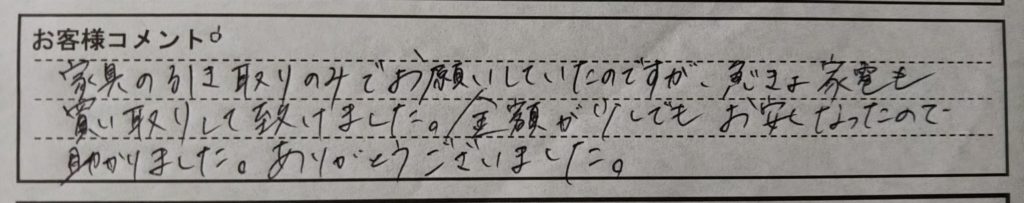 お客様コメント
家具の引き取りのみでお願いしていたのですが、急きょ家電も
買い取りして致けました。金額が少しでもお安くなったので
助かりました。ありがとうございました。